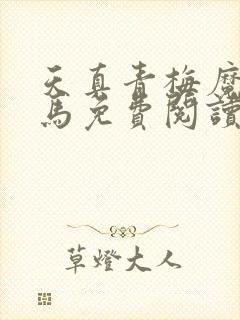 天真青梅魔
馬免費閱讀
草燈大人